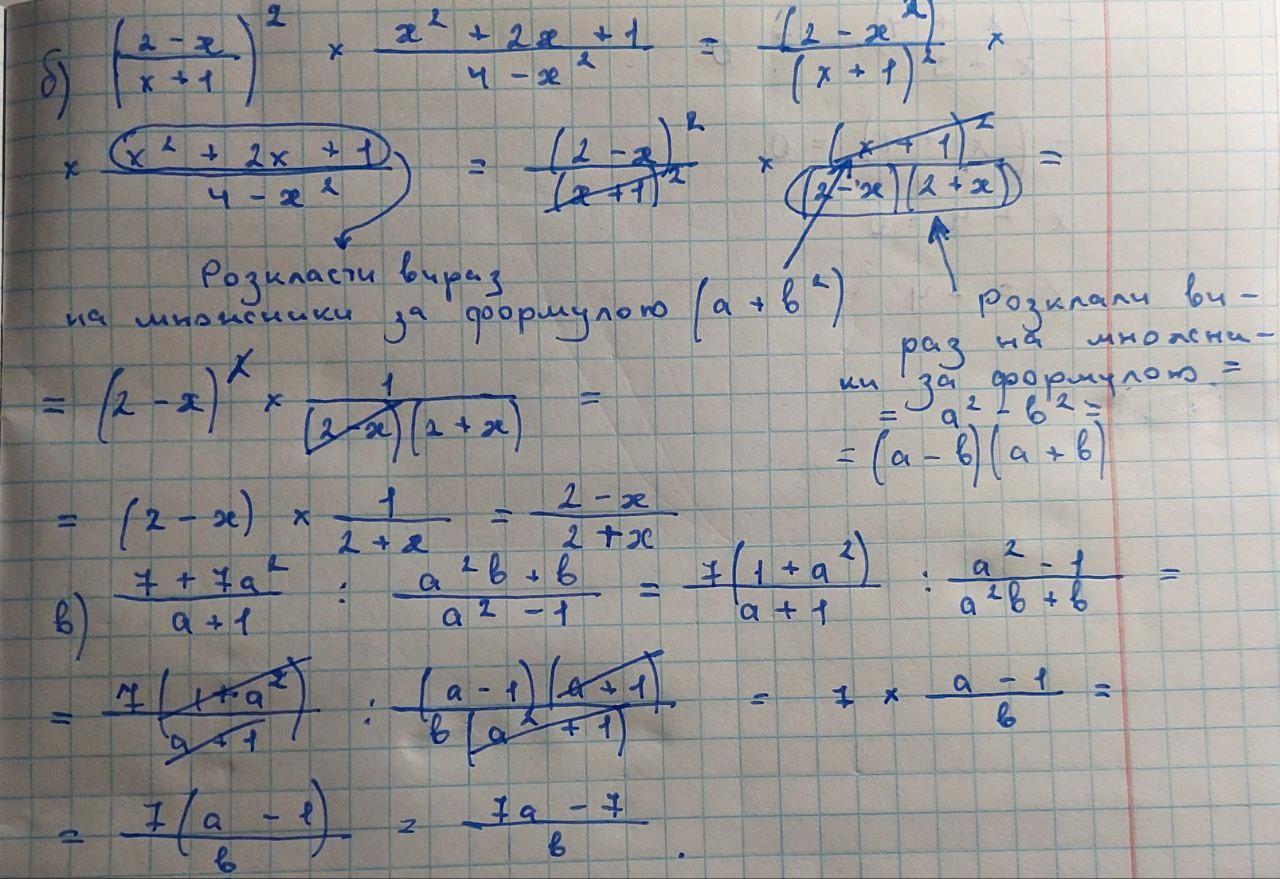 б) ((2 - x)/(x + 1))² × (x² + 2x + 1)/(4 - x²) = (2 - x²)/(x + 1)² ×
× (x² + 2x + 1)/(4 - x²) = (2 - x)²/(x + 1)² × (x + 1)²/((2 - x)(2 + x)) =
Розкласти вираз
на множники за формулою (a + b²)
Розклали ви-
раз на множни-
ки за формулою =
= a² - b² =
= (a - b)(a + b)
= (2 - x)² × 1/((2 - x)(2 + x)) =
= (2 - x) × 1/(2 + x) = (2 - x)/(2 + x)
в) (7 + 7a²)/(a + 1) : (a²b + b)/(a² - 1) = 7(1 + a²)/(a + 1) : (a² - 1)/(a²b + b) =
= 7(1 + a²)/(a + 1) : (a - 1)(a + 1)/(b(a² + 1)) = 7 × (a - 1)/b =
= 7(a - 1)/b = (7a - 7)/b.